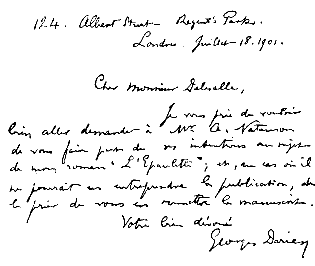 124. Albert Street - Regent's Park.
Londres. Juillet - 18. 1901.
Cher Monsieur Delesalle,
Je vous prie de vouloir
bien aller demander à Mr. A. Natanson
de vous faire part de ses intentions au sujet
de mon roman "L'Epaulette"; et, au cas où il
ne pourrait en entreprendre la publication, de
le prier de vous en remettre le manuscrit.
Votre bien dévoué
Georges Darien